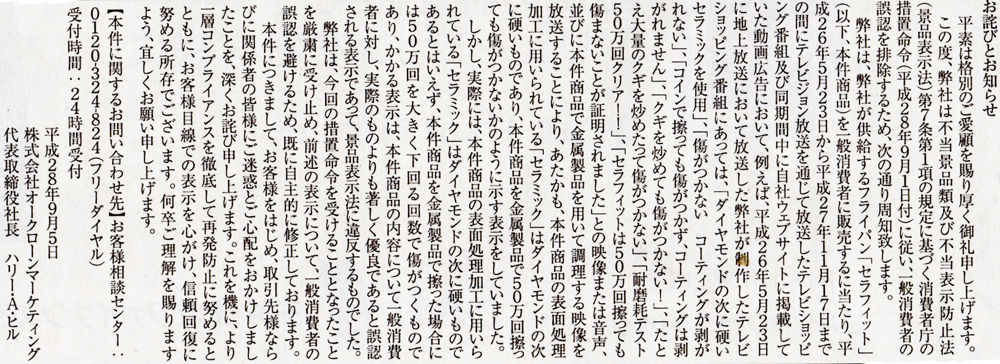 お詫びとお知らせ
平素は格別のご愛顧を賜り厚く御礼申し上げます。
この度、弊社は不当景品類及び不当表示防止法
(景品表示法)第7条第1項の規定に基づく消費者庁の
措置命令(平成28年9月1日付)に従い、一般消費者の
誤認を排除するため、次の通り周知致します。
弊社は、弊社が供給するフライパン「セラフィット」
(以下、本件商品)を一般消費者に販売するに当たり、平
成26年5月23日から平成27年11月17日まで
の間にテレビジョン放送を通じて放送したテレビショッピ
ング番組及び同期間中に自社ウェブサイトに掲載して
いた動画広告において、例えば、平成26年5月23日
に地上放送において放送した弊社が制作したテレビ
ショッピング番組にあっては、「ダイヤモンドの次に硬い
セラミックを使用」、「傷がつかない コーティングが剥が
れない」、「コインで擦っても傷がつかず、コーティングは剥
がれません」、「クギを炒めても傷がつかない!」、「たと
え大量のクギを炒めたって傷がつかない」、「耐磨耗テスト
50万回クリアー!」、「セラフィットは50万回擦っても
傷まないことが証明されました」との映像または音声、
並びに本件商品で金属製品を用いて調理する映像を
放送することにより、あたかも、本件商品の表面処理
加工に用いられている「セラミック」はダイヤモンドの次
に硬いものであり、本件商品を金属製品で50万回擦っ
ても傷がつかないかのように示す表示をしていました。
しかし、実際には、本件商品の表面処理加工に用いら
れている「セラミック」はダイヤモンドの次に硬いもので
あるとはいえず、本件商品を金属製品で擦った場合に
は50万回を大きく下回る回数で傷がつくもので
あり、かかる表示は、本件商品の内容について一般消費
者に対し、実際のものよりも著しく優良であると誤認
される表示であって、景品表示法に違反するものでした。
弊社は、今回の措置命令を受けることとなったこと
を厳粛に受け止め、前述の表示について、一般消費者の
誤認を避けるため、既に自主的に修正しております。
本件につきまして、お客様をはじめ、取引先様なら
びに関係者の皆様にご迷惑とご心配をおかけしまし
たことを、深くお詫び申し上げます。これを機に、より
一層コンプライアンスを徹底して再発防止に努めると
ともに、お客様目線での表示を心がけ、信頼回復に
努める所存でございます。何卒ご理解を賜ります
よう、宜しくお願い申し上げます。
【本件に関するお問い合わせ先】お客様相談センター:
0120-324-824(フリーダイヤル)
受付時間:24時間受付
平成28年9月5日
株式会社オークローンマーケティング
代表取締役社長 ハリー・A・ヒル